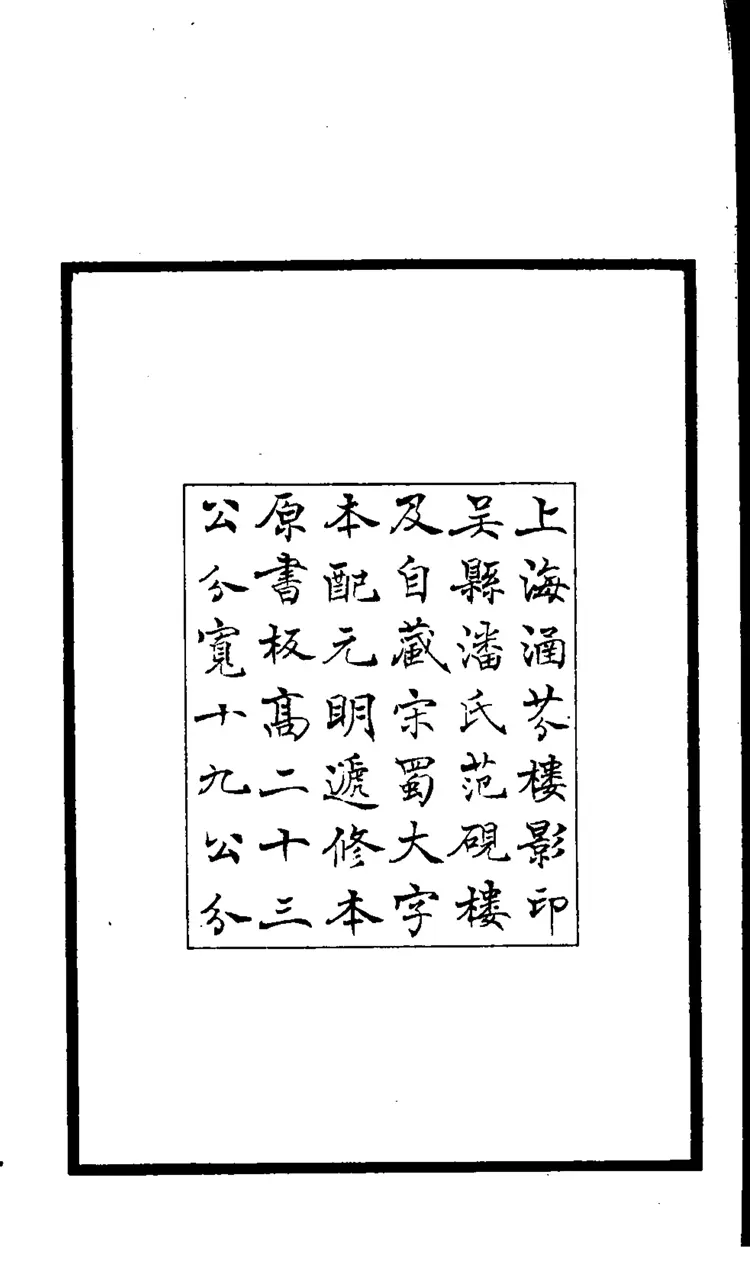 上海涵芬樓影印
吴縣潘氏范硯樓
及自藏宋蜀大字
本配元明遞修本
原書板高二十三
公分寬十九公分